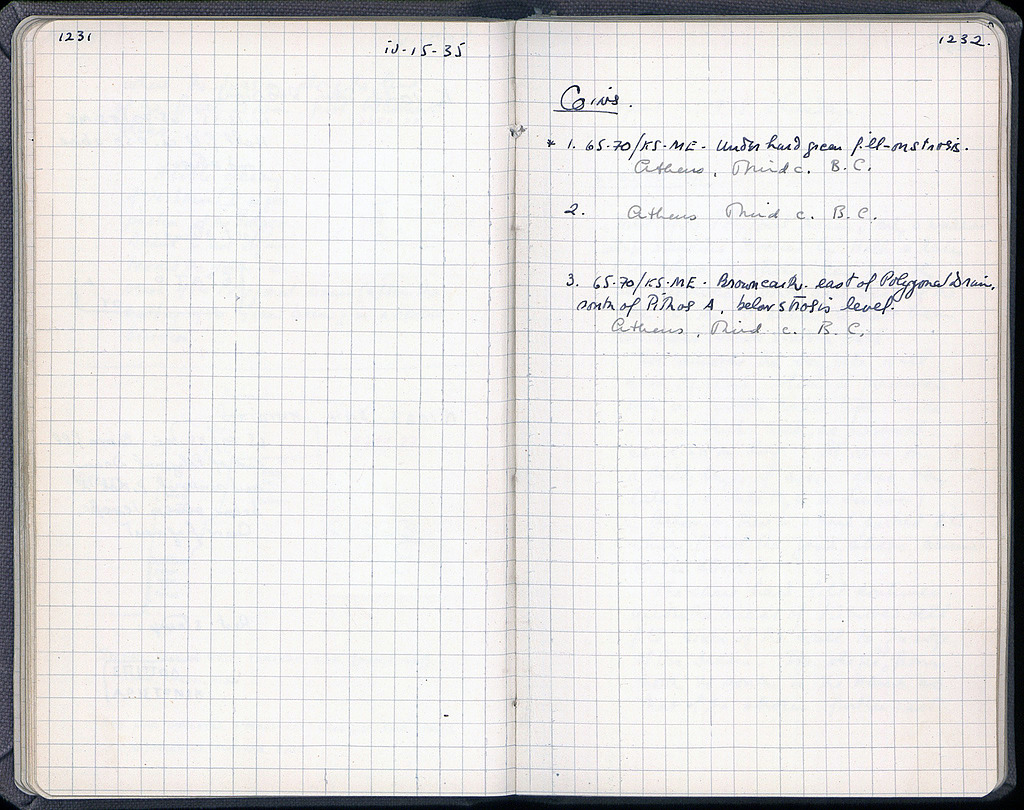 1231
iv-15-35
1232.
Coins.
* 1. 65-70/ΚΣ-ΜΕ - Under hard green fill-on strosis.
Athens, Third c. B.C.
2. Athens Third c. B.C.
3. 65-70/ΚΣ-ΜΕ - Brown earth. east of Polygonal Drain,
south of Pithos A, below strosis level.
Athens, Third c. B.C.